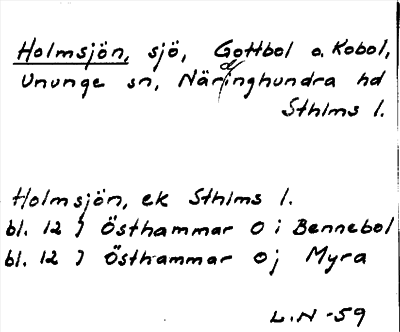 Holmsjön, sjö, Gottbol o. Kobol,
Ununge sn, Närdinghundra hd
Sthlms l.
Holmsjön, ek Sthlms l.
bl. 12 J Östhammar O i Bennebol
bl. 12 J Östhammar Oj Myra
L.N -59